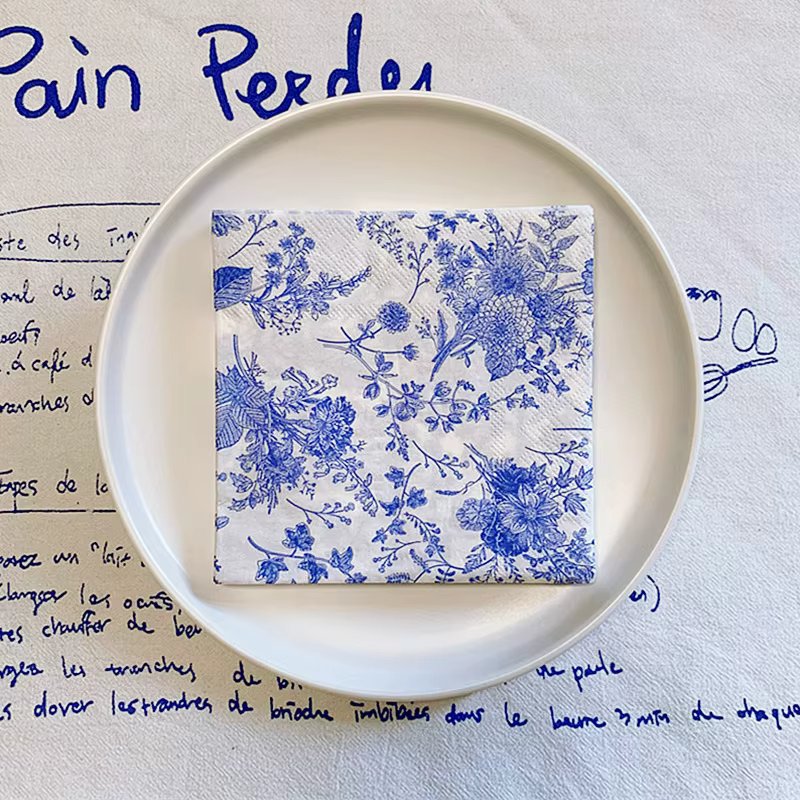 Pain Perdu
ste des ingr
de lait
oeufs
à café d
tranches d
tapes de la
posez un "lait
élangez les oeufs,
es)
tes chauffer de beu
rgez les tranches de bri
de paele
s dorer lestrandres de brioche imbibées dans le beurre 3 min de chaque